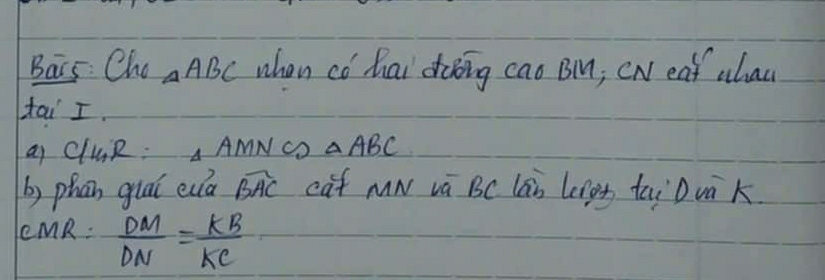 Bài 5: Cho △ABC nhọn có hai đường cao BM; CN cắt nhau
tại I.
a) C/mR: △AMN ∽ △ABC
b) phân giác của BAC cắt MN và BC lần lượt tại D và K.
CMR: DM/DN = KB/KC